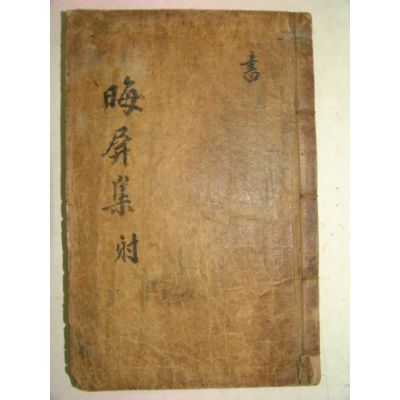 書
晦屛集 射